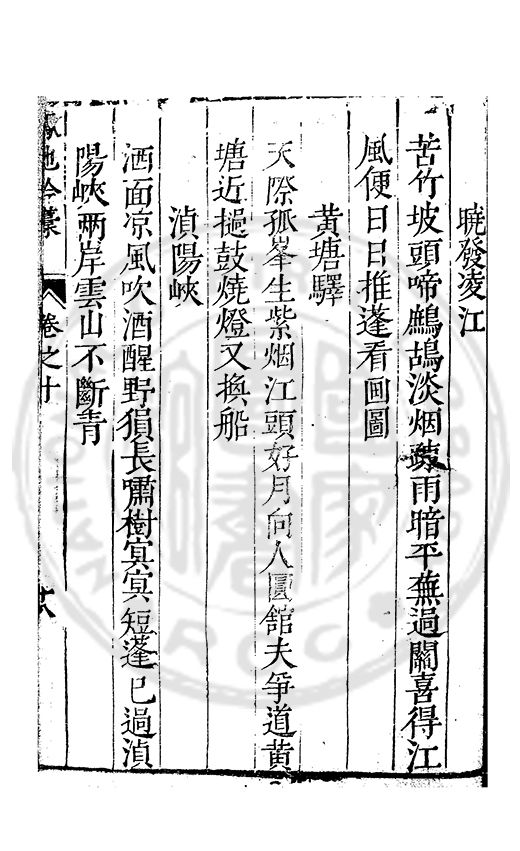 曉發凌江
苦竹坡頭啼鷓鴣淡烟疎雨暗平蕪過關喜得江
風便日日推蓬看畫圖
黃塘驛
天際孤峯生紫烟江頭好月向人圓舘夫爭道黃
塘近撾鼓燒燈又換船
湞陽峽
洒面凉風吹酒醒野猿長嘯樹冥冥短蓬已過湞
陽峽兩岸雲山不斷青
卷之十